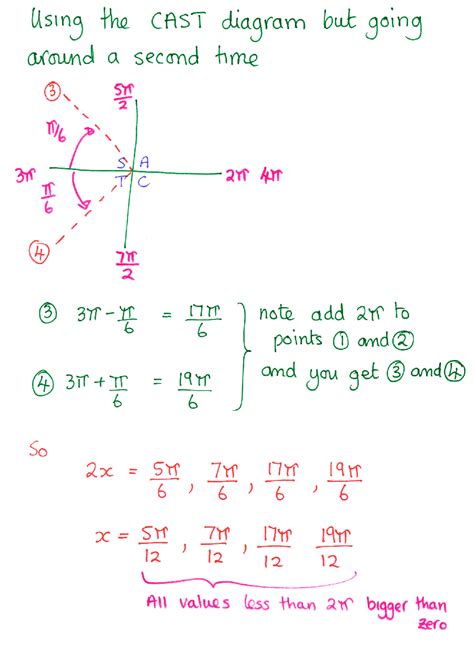 Using the CAST diagram but going
around a second time
③
5π/2
π/6
S A
3π
T C
2π 4π
π/6
④
7π/2
③ 3π - π/6 = 17π/6
④ 3π + π/6 = 19π/6
note add 2π to
points ① and ②
and you get ③ and ④
So
2x = 5π/6 , 7π/6 , 17π/6 , 19π/6
x = 5π/12 , 7π/12 , 17π/12 19π/12
All values less than 2π bigger than
zero